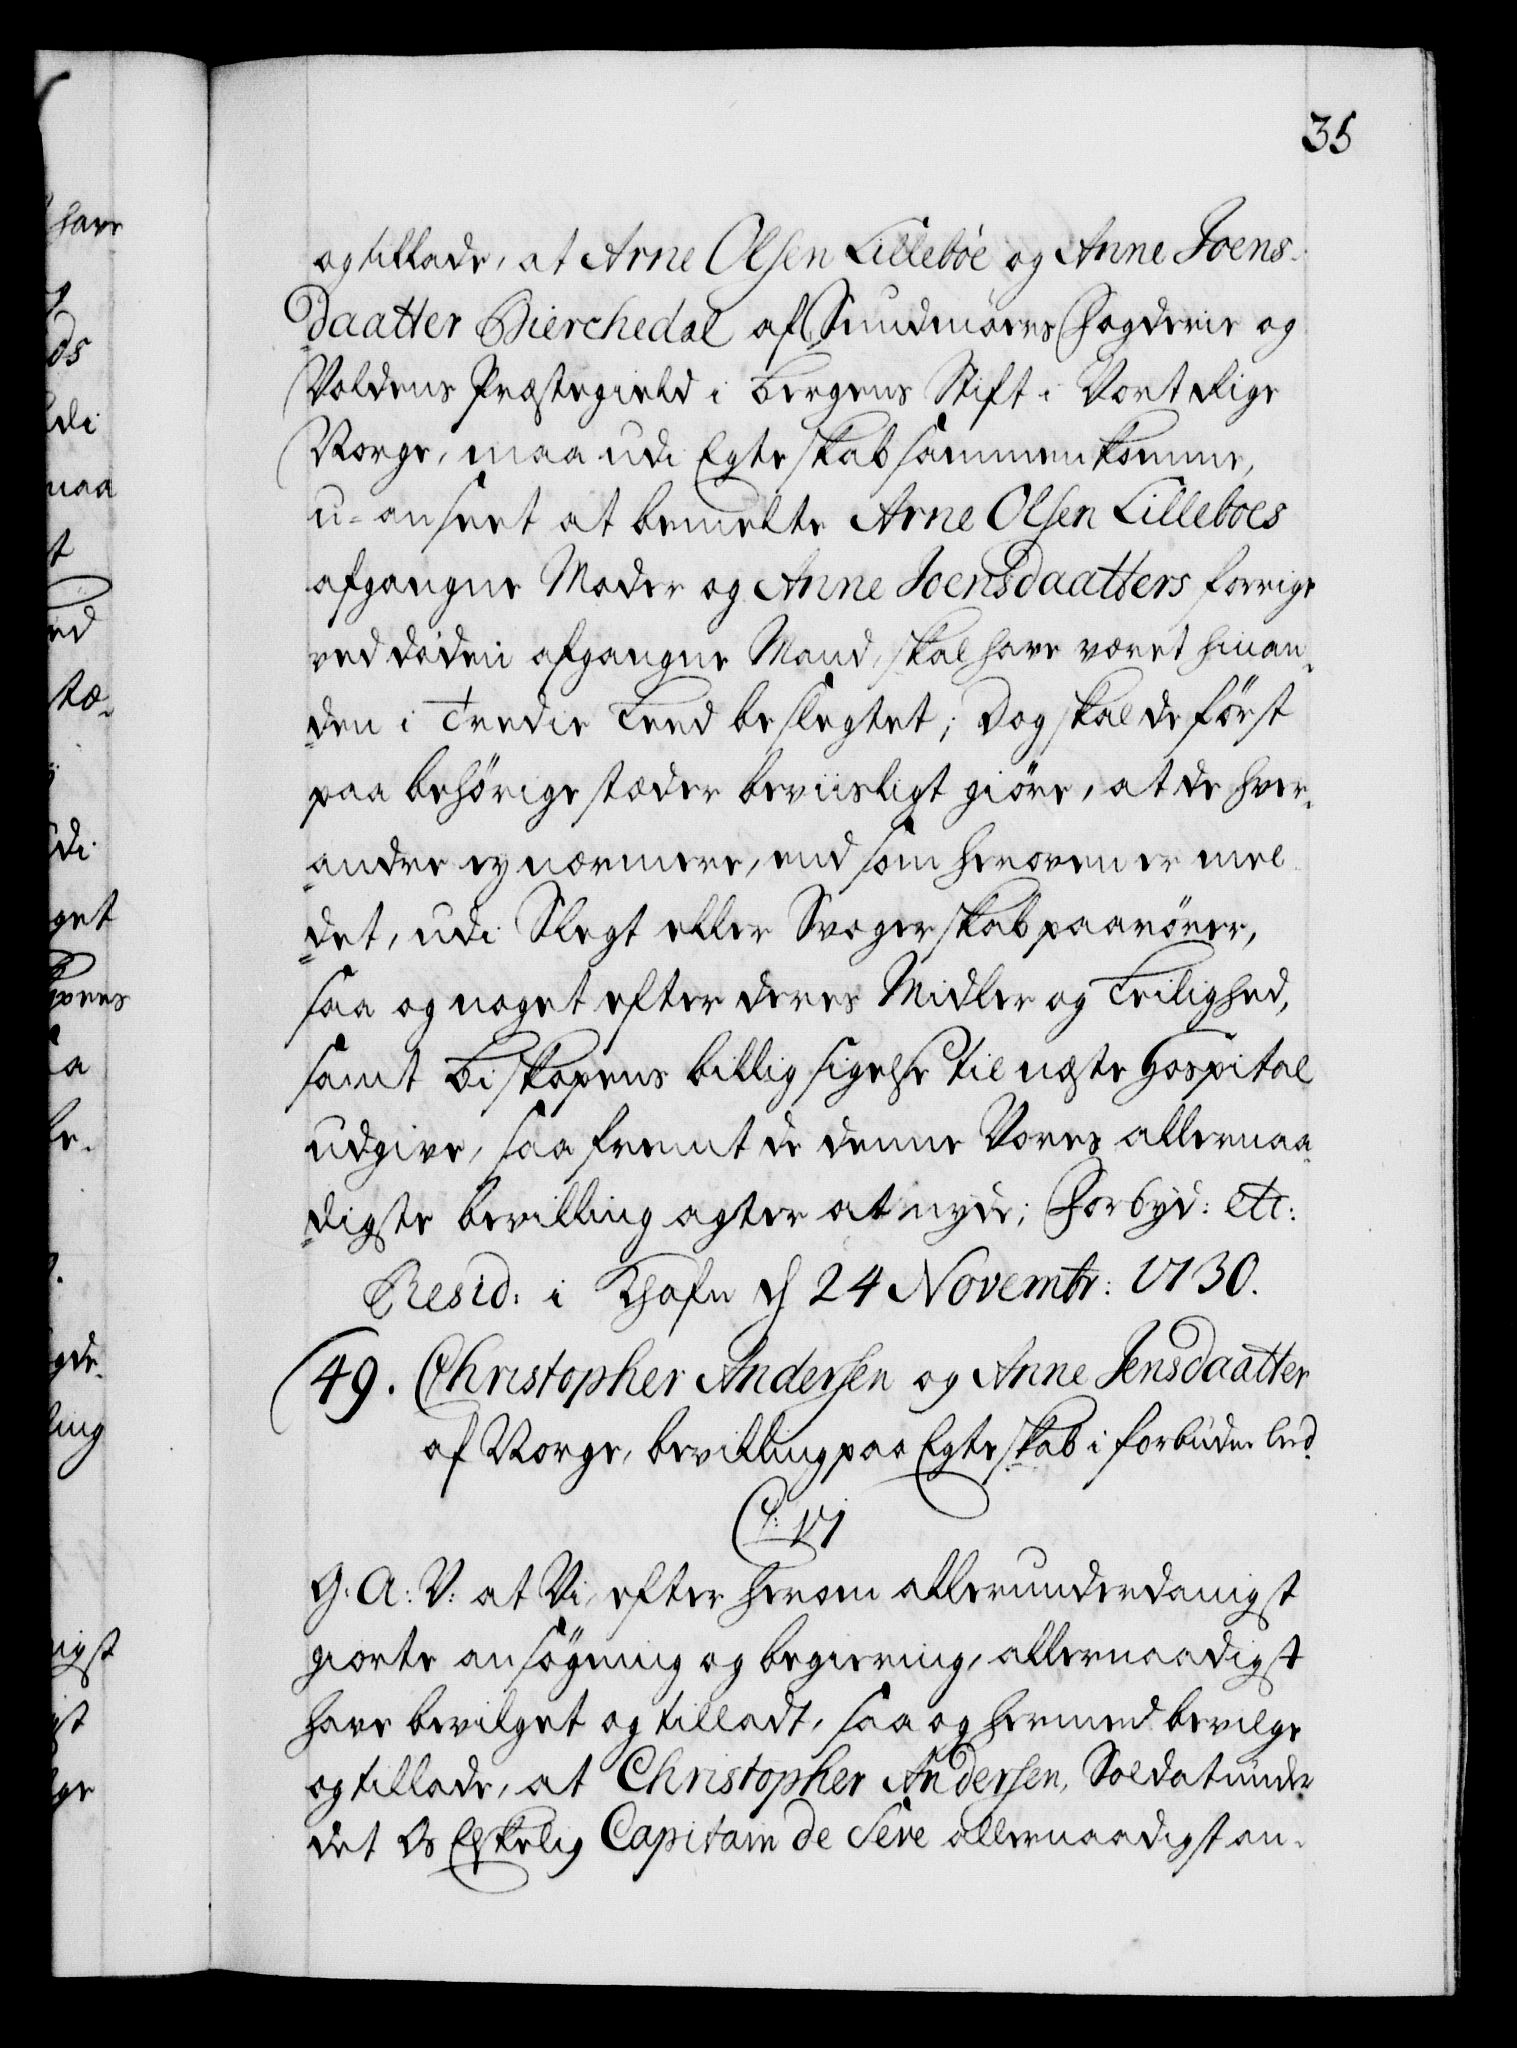 35
og tillade, at Arne Olsen Lillebøe og Anne Joens-
daatter Bierchedal af Sundmøers Fogderie og
Voldens Præstegield i Bergens Stift i Vort Rige
Norge, maa udi Egteskab sammenkomme,
u-anseet at bemelte Arne Olsen Lilleboes
afgangne Moder og Anne Joensdaatters forrige
ved døden afgangne Mand, skal have været hinan-
den i Tredie Leed beslegtet; Dog skal de först
paa behörige stæder beviisligt giöre, at de hver-
andre ey nærmere, end som heroven er mel-
det, udi Slegt eller Svogerskab paarörer,
saa og noget efter deres Midler og Leilighed,
samt Biskopens billig sigelse til næste Hospital
udgive, saa fremt de denne Vores allernaa-
digste bevilling agter at nyde; Forbyd: etc:
Resid: i Khafn d 24 Novembr: 1730.
49. Christopher Andersen og Anne Jensdaatter
af Norge, bevilling paa Egteskab i forbuden leed.
C: VI
G. A: V: at Vi, efter herom allerunderdanigst
giorte ansögning og begiering, allernaadigst
have bevilget og tilladt, saa og hermed bevilge
og tillade, at Christopher Andersen, Soldat under
det Os Elskelig Capitain de Seve allernaadigst an-